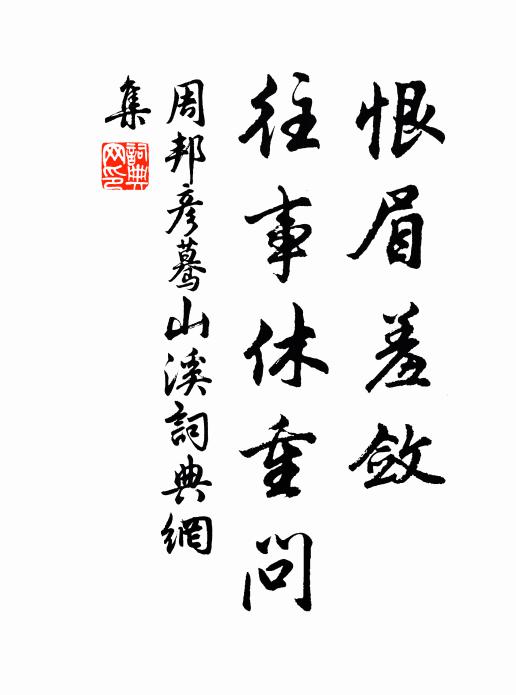 恨眉羞斂
往事休重問
周邦彥驀山溪詞典網
集
詞典網印